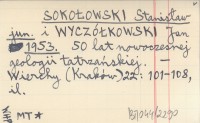 SOKOŁOWSKI Stanisław
jun. i WYCZÓŁKOWSKI Jan
1953. 50 lat nowoczesnej
geologii tatrzańskiej. —
Wierchy (Kraków) 22: 101-108,
il.
MT*